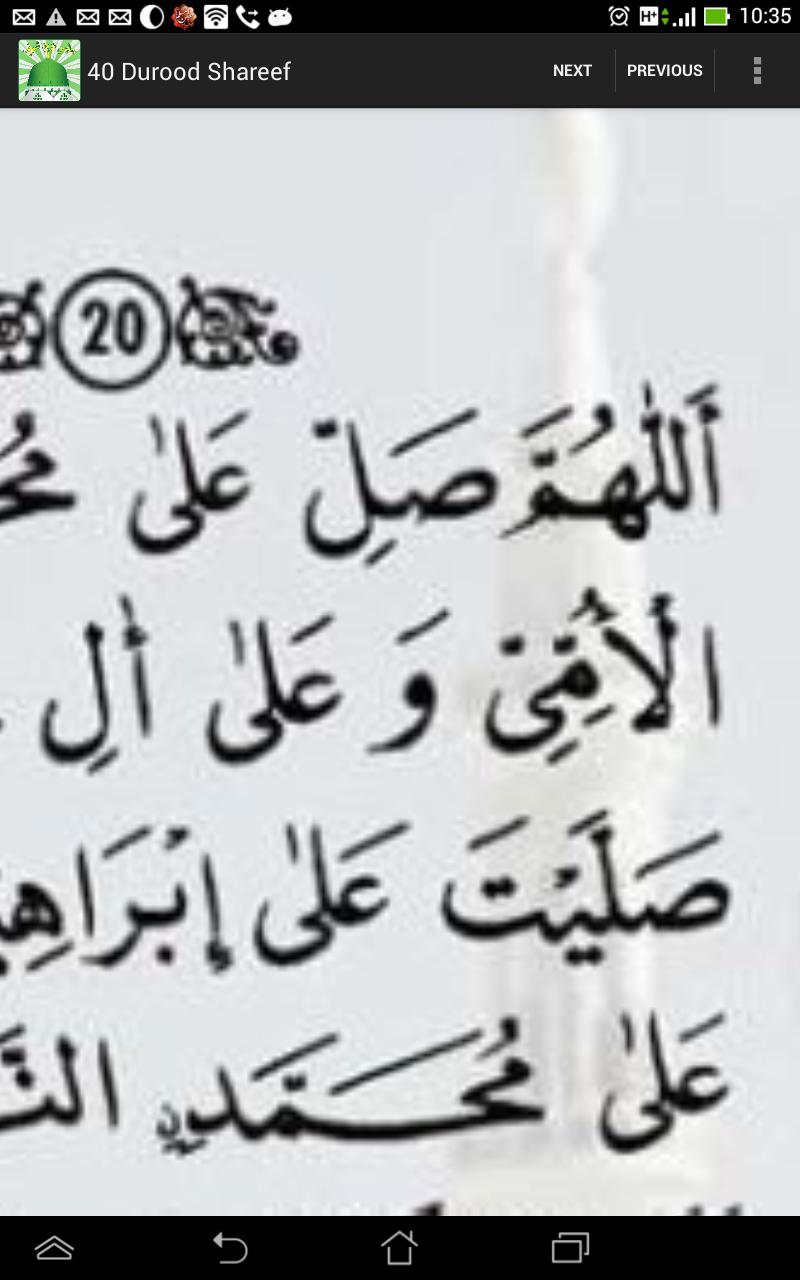 10:35
40 Durood Shareef
NEXT
PREVIOUS
20
أَللّٰهُمَّ صَلِّ عَلىٰ
الْأُمِّيِّ وَ عَلىٰ أٰلِ
صَلَّيْتَ عَلىٰ
عَلىٰ مُحَمَّدِنِ